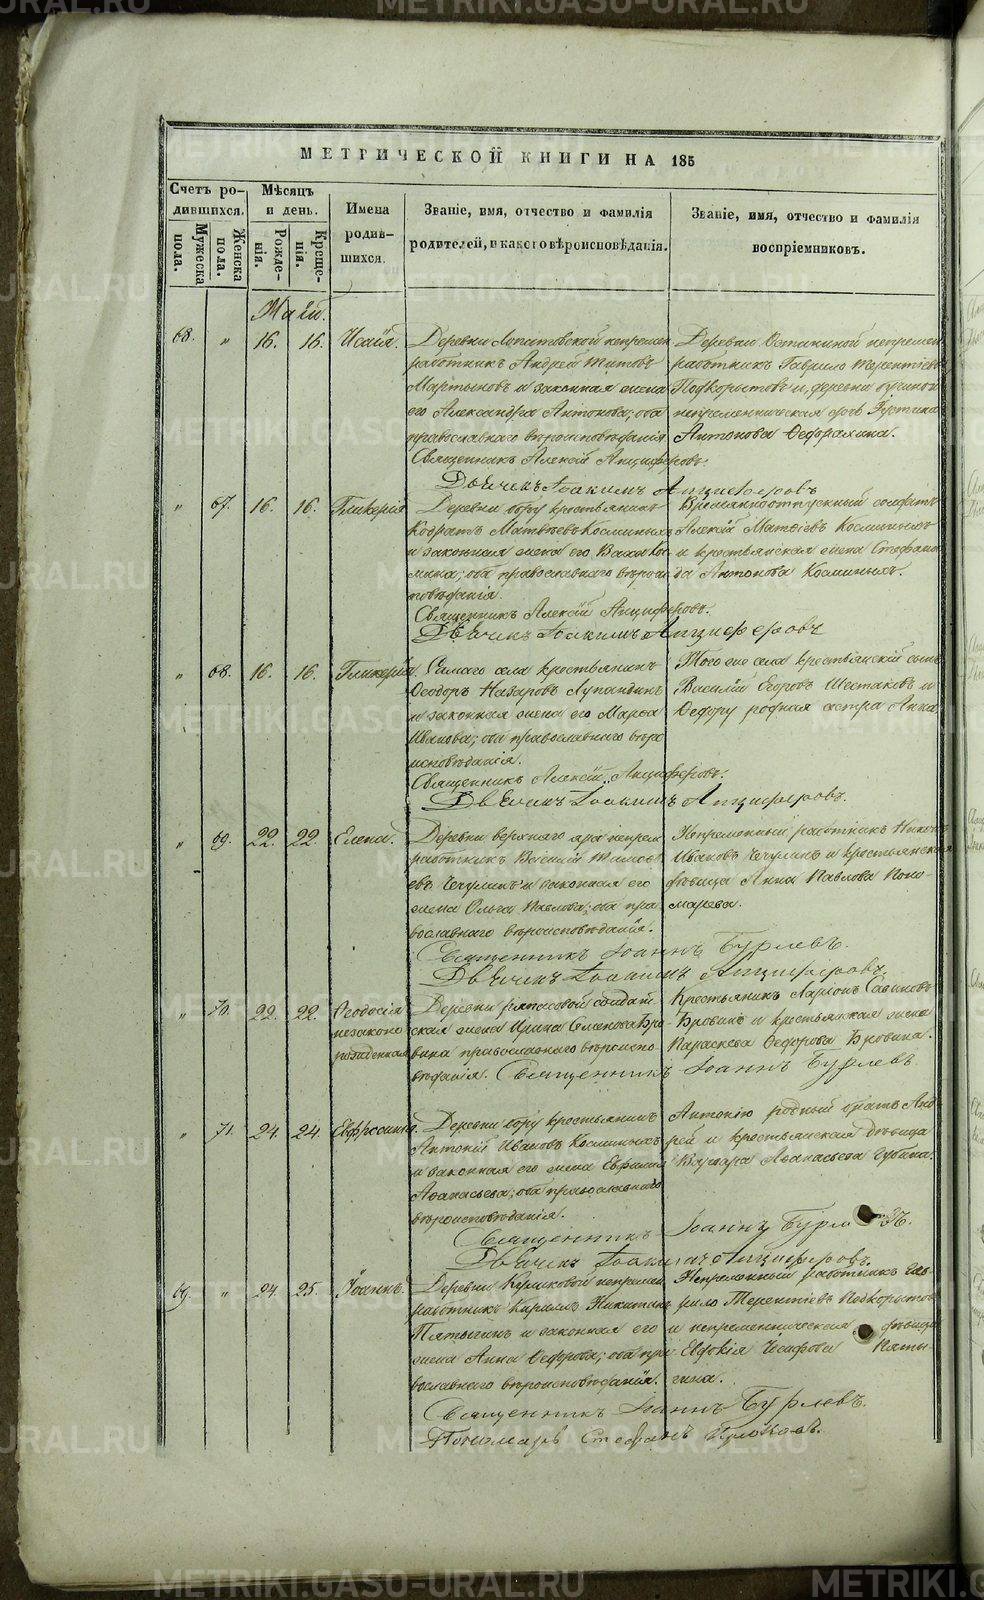 МЕТРИЧЕСКОЙ КНИГИ НА 185
Счетъ ро-
дившихся.
Мужеска
пола.
Женска
пола.
Мѣсяцъ
и день.
Рожде-
нія.
Креще-
нія.
Имена
родив-
шихся.
Званіе, имя, отчество и фамилія
родителей, и какого вѣроисповѣданія.
Званіе, имя, отчество и фамилія
воспріемниковъ.
Май.
68. " 16. 16. Исаія.
Деревни непремен
работникъ Андрей Титовъ
Мартыновъ и законная жена
его Александра Антонова; оба
православнаго вѣроисповѣданія
Священникъ Алексій Анциферовъ.
Дьячекъ Іоакимъ Анциферовъ
Деревни непремен
работникъ Гаврило Терентіевъ
Подкорытовъ и деревни
непременническая дочь
Антонова
" 67. 16. 16. Гликерія
Деревни бору крестьянинъ
Кодратъ Матвѣевъ Косминыхъ
и законная жена его
оба православнаго вѣроис
повѣданія.
Священникъ Алексій Анциферовъ.
Дьячекъ Іоакимъ Анциферовъ
Временноотпускный солдатъ
Алексій Матвіевъ Косминыхъ
и крестьянская жена Стефани
да Антонова Косминыхъ.
" 68. 16. 16. Гликерія.
Самаго села крестьянинъ
Ѳеодоръ Назаровъ Лупандинъ
и законная жена его Марѳа
Иванова; оба православнаго вѣро
исповѣданія.
Священникъ Алексій Анциферовъ.
Дьячекъ Іоакимъ Анциферовъ.
Того же села крестьянскій сынъ
Василій Егоровъ Шестаковъ и
Ѳедору родная сестра Анна
" 69. 22. 22. Елена.
Деревни верхняго яра непрем
работникъ Василій Тимоѳ
евъ Чечулинъ и законная его
жена Ольга Павлова; оба пра
вославнаго вѣроисповѣданія.
Священникъ Іоаннъ Бурлевъ.
Дьячекъ Іоакимъ Анциферовъ.
Непременный работникъ
Ивановъ Чечулинъ и крестьянская
дѣвица Анна Павлова Поно-
марева.
" 70. 22. 22. Ѳеодосія
незаконо
рожденная
Деревни солдат
ская жена Ирина Семенова Бро
вина православнаго вѣроиспо-
вѣданія. Священникъ Іоаннъ Бурлевъ
Крестьянинъ Ларіонъ Савиновъ
Бровинъ и крестьянская жена
Параскева Ѳедорова Бровина.
" 71. 24. 24. Евфросинія.
Деревни бору крестьянинъ
Антоній Ивановъ Косминыхъ
и законная его жена Евфимія
Аѳанасьева; оба православнаго
вѣроисповѣданія.
Священникъ Іоаннъ Бурлевъ.
Дьячекъ Іоакимъ Анциферовъ.
Антонію родный братъ Анд
рей и крестьянская дѣвица
Варвара Аѳанасьева Губина.
69. " 24. 25. Іоаннъ.
Деревни непремен
работникъ Кирилло Никитинъ
Пятыгинъ и законная его
жена Анна Ѳедорова; оба пра
вославнаго вѣроисповѣданія.
Священникъ Іоаннъ Бурлевъ.
Пономарь Стефанъ
Непременный работникъ Гав-
рило Терентіевъ Подкорытовъ
и непременническая дѣвица
Евдокія Пяты-
гина.
METRIKI.GASO-URAL.RU